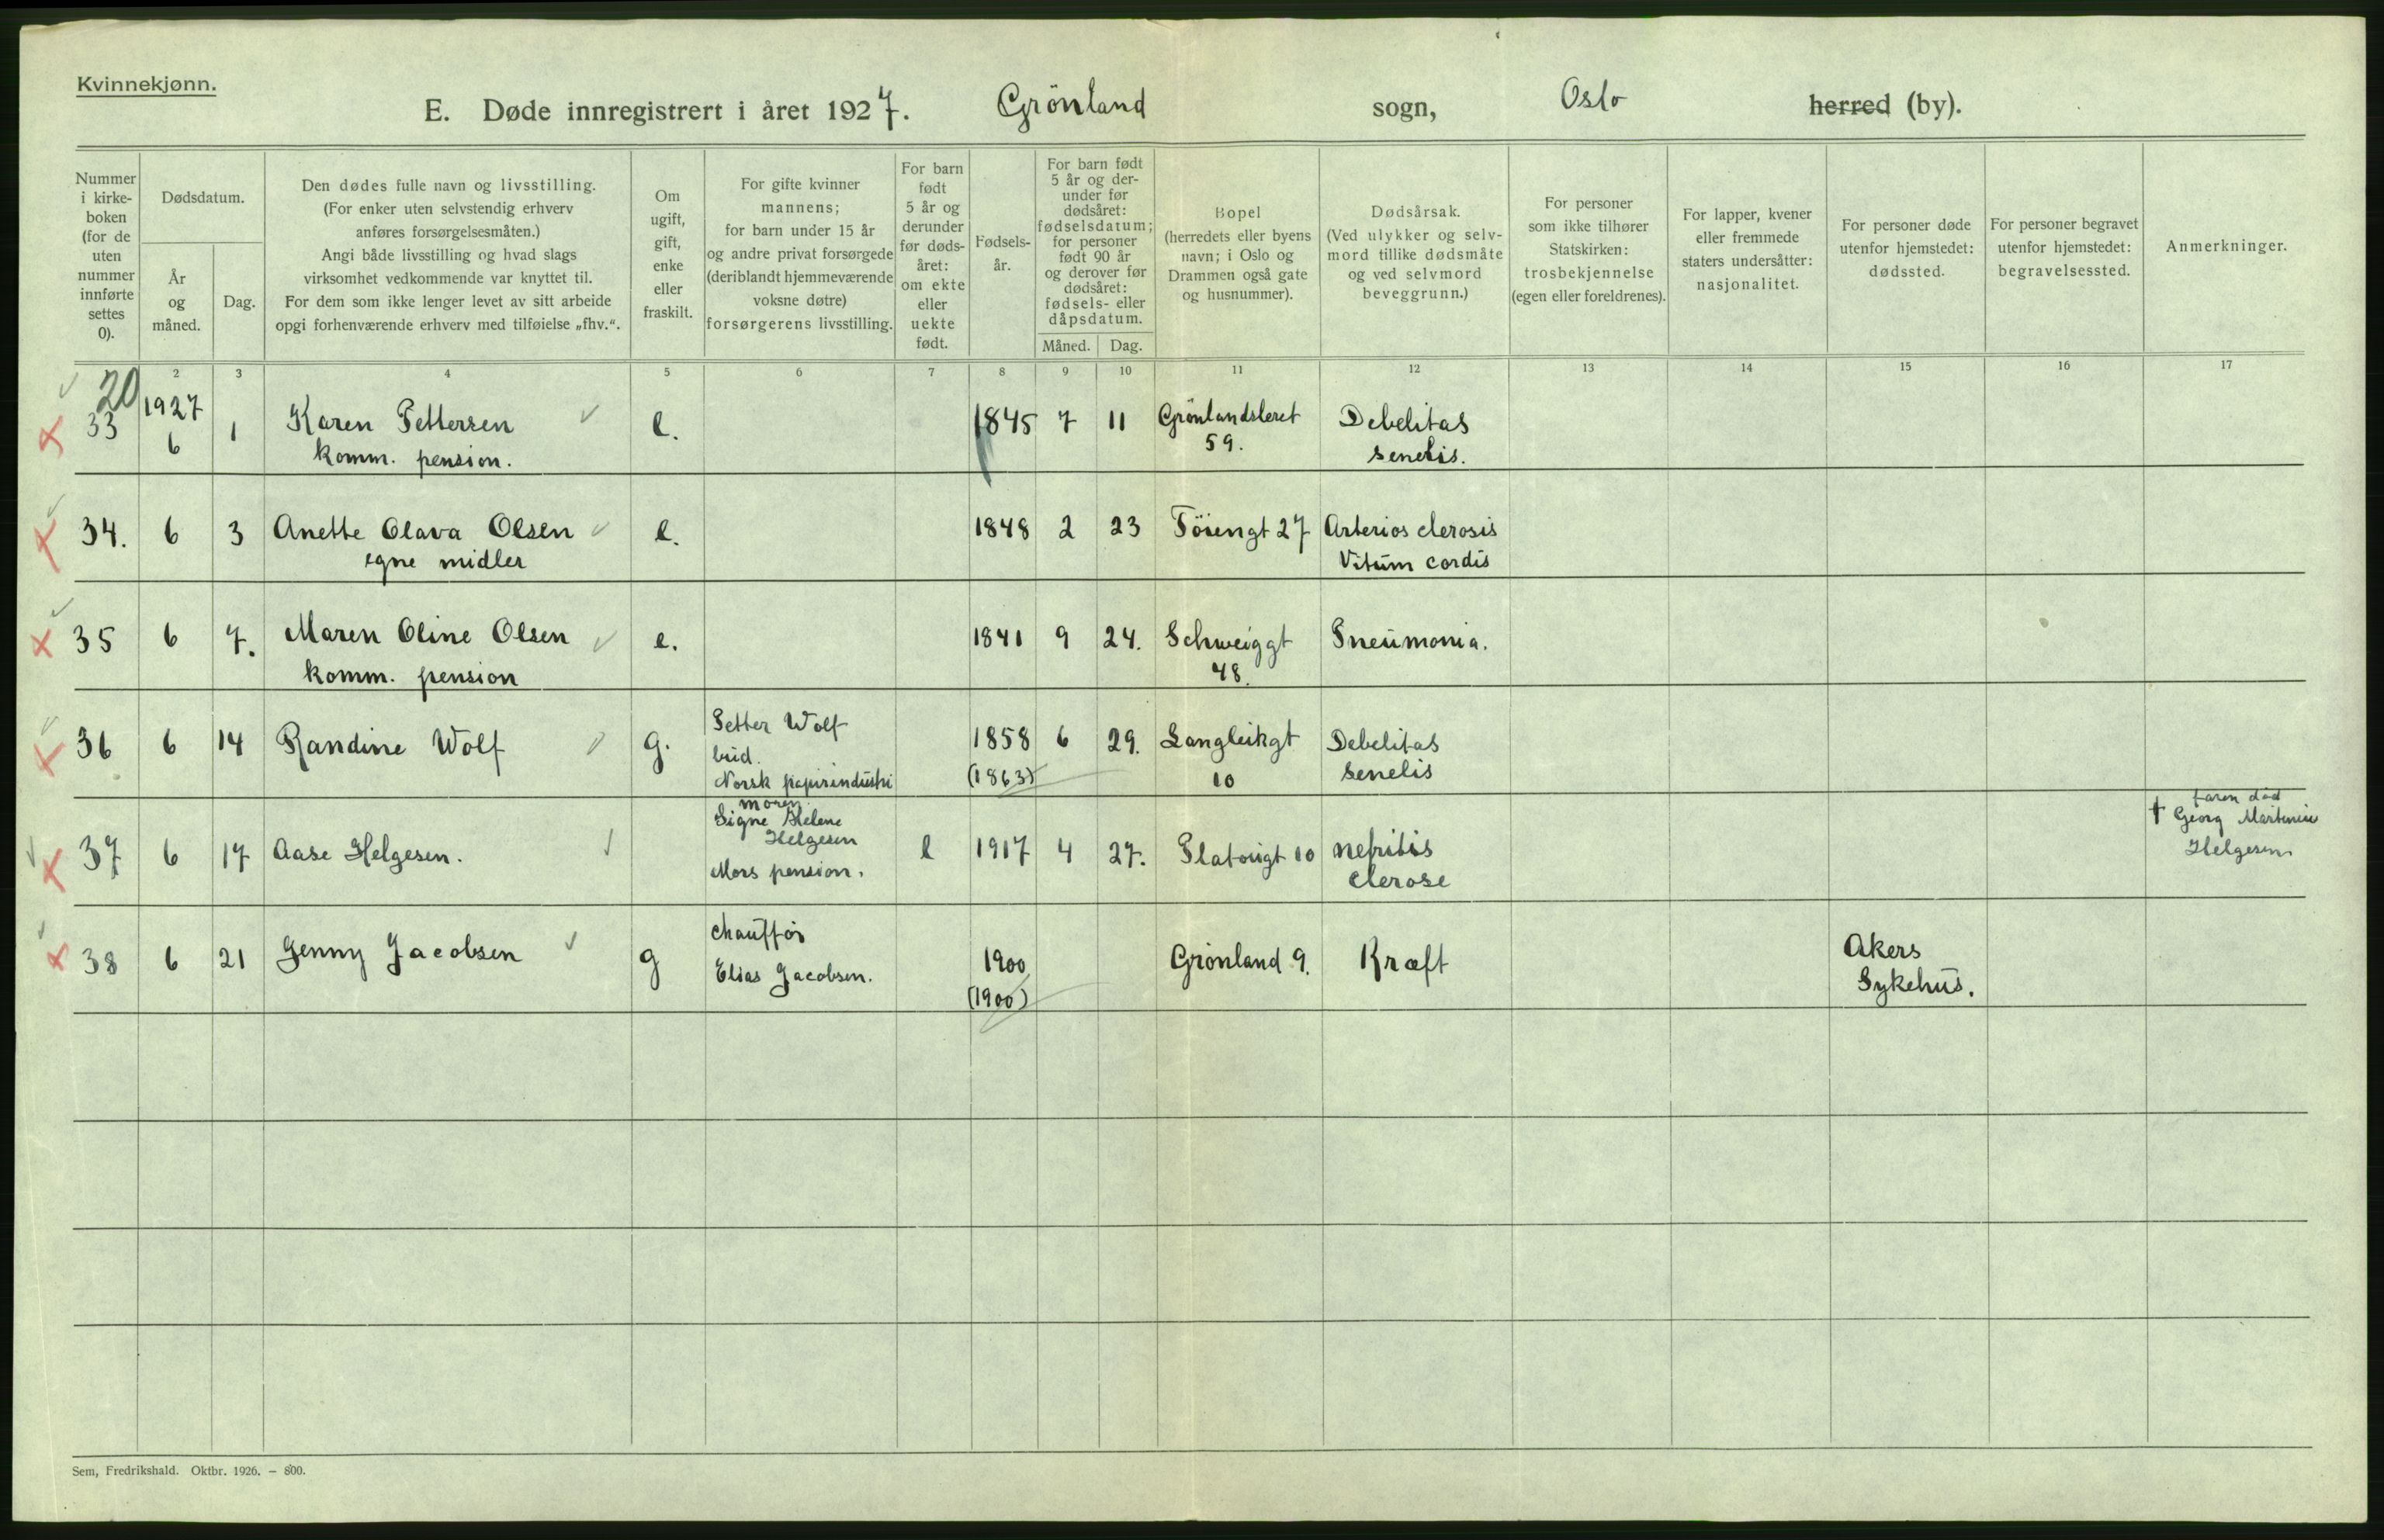 Kvinnekjønn.
E. Døde innregistrert i året 1927. Grönland sogn, Oslo herred (by).
Nummer i kirke-boken (for de uten nummer innførte settes 0).
Dødsdatum.
År og måned.
Dag.
Den dødes fulle navn og livsstilling.
(For enker uten selvstendig erhverv
anføres forsørgelsesmåten.)
Angi både livsstilling og hvad slags
virksomhet vedkommende var knyttet til.
For dem som ikke lenger levet av sitt arbeide
opgi forhenværende erhverv med tilføielse „fhv.“.
Om
ugift,
gift,
enke
eller
fraskilt.
For gifte kvinner
mannens;
for barn under 15 år
og andre privat forsørgede
(deriblandt hjemmeværende
voksne døtre)
forsørgerens livsstilling.
For barn
født
5 år og
derunder
før døds-
året:
om ekte
eller
uekte
født.
Fødsels-
år.
For barn født
5 år og der-
under før
dødsåret:
fødselsdatum;
for personer
født 90 år
og derover før
dødsåret:
fødsels- eller
dåpsdatum.
Måned. Dag.
Bopel
(herredets eller byens
navn; i Oslo og
Drammen også gate
og husnummer).
Dødsårsak.
(Ved ulykker og selv-
mord tillike dødsmåte
og ved selvmord
beveggrunn.)
For personer
som ikke tilhører
Statskirken:
trosbekjennelse
(egen eller foreldrenes).
For lapper, kvener
eller fremmede
staters undersåtter:
nasjonalitet.
For personer døde
utenfor hjemstedet:
dødssted.
For personer begravet
utenfor hjemstedet:
begravelsessted.
Anmerkninger.
2 3 4 5 6 7 8 9 10 11 12 13 14 15 16 17
20
33 1927 6 1 Karen Pettersen e. 1845 7 11 Grönlandsleret Debelitas
komm. pension. 59. senelis.
34. 6 3 Anette Olava Olsen e. 1848 2 23 Töiengt 27 Arterios clerosis
egne midler Vitum cordis
35 6 7. Maren Oline Olsen e. 1841 9 24. Schweiggt Pneumonia.
komm. pension 48.
36 6 14 Randine Wolf g. Petter Wolf 1858 6 29. Langleikgt Debelitas
bud. (1863) 10 senelis
Norsk papirindustri
37 6 17 Aase Helgesen. moren Signe Helene Helgesen e 1917 4 27. Platougt 10 nefritis
Mors pension. clerose
faren död
† Georg Martinius
Helgesen
38 6 21 Jenny Jacobsen g chauffør 1900 Grönland 9. Kræft Akers
Elias Jacobsen. (1900) Sykehus.
Sem, Fredrikshald. Oktbr. 1926. – 800.